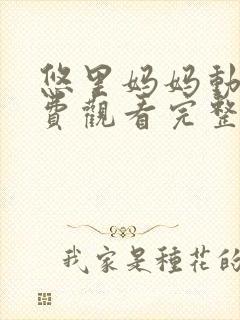 悠里妈妈動
費觀看完整
我家是種花的